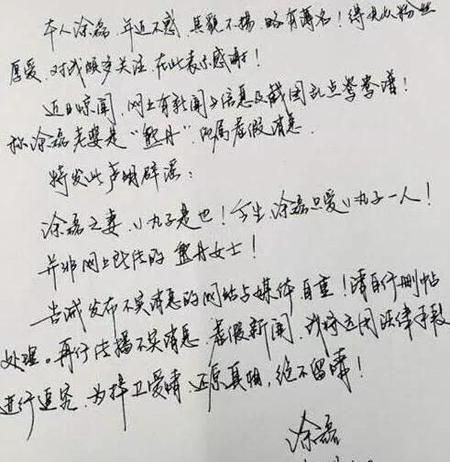 本人涂磊，年近不惑，其貌不揚，略有薄名！得大众粉丝
厚爱，对我颇多关注，在此表示感谢！
近日惊闻，网上有新闻与信息及截图乱点鸳鸯谱！
称涂磊老婆是“敬丹”，均属虚假消息。
特发此声明辟谣：
涂磊之妻，小丸子是也！今生，涂磊只爱小丸子一人！
并非网上所传的 女士！
告诫发布不实消息的网站与媒体自重！请自行删帖
处理。再行传播不实消息、虚假新闻，我将运用法律手段
进行追究，为捍卫爱情，还原真相，绝不留情！
涂磊